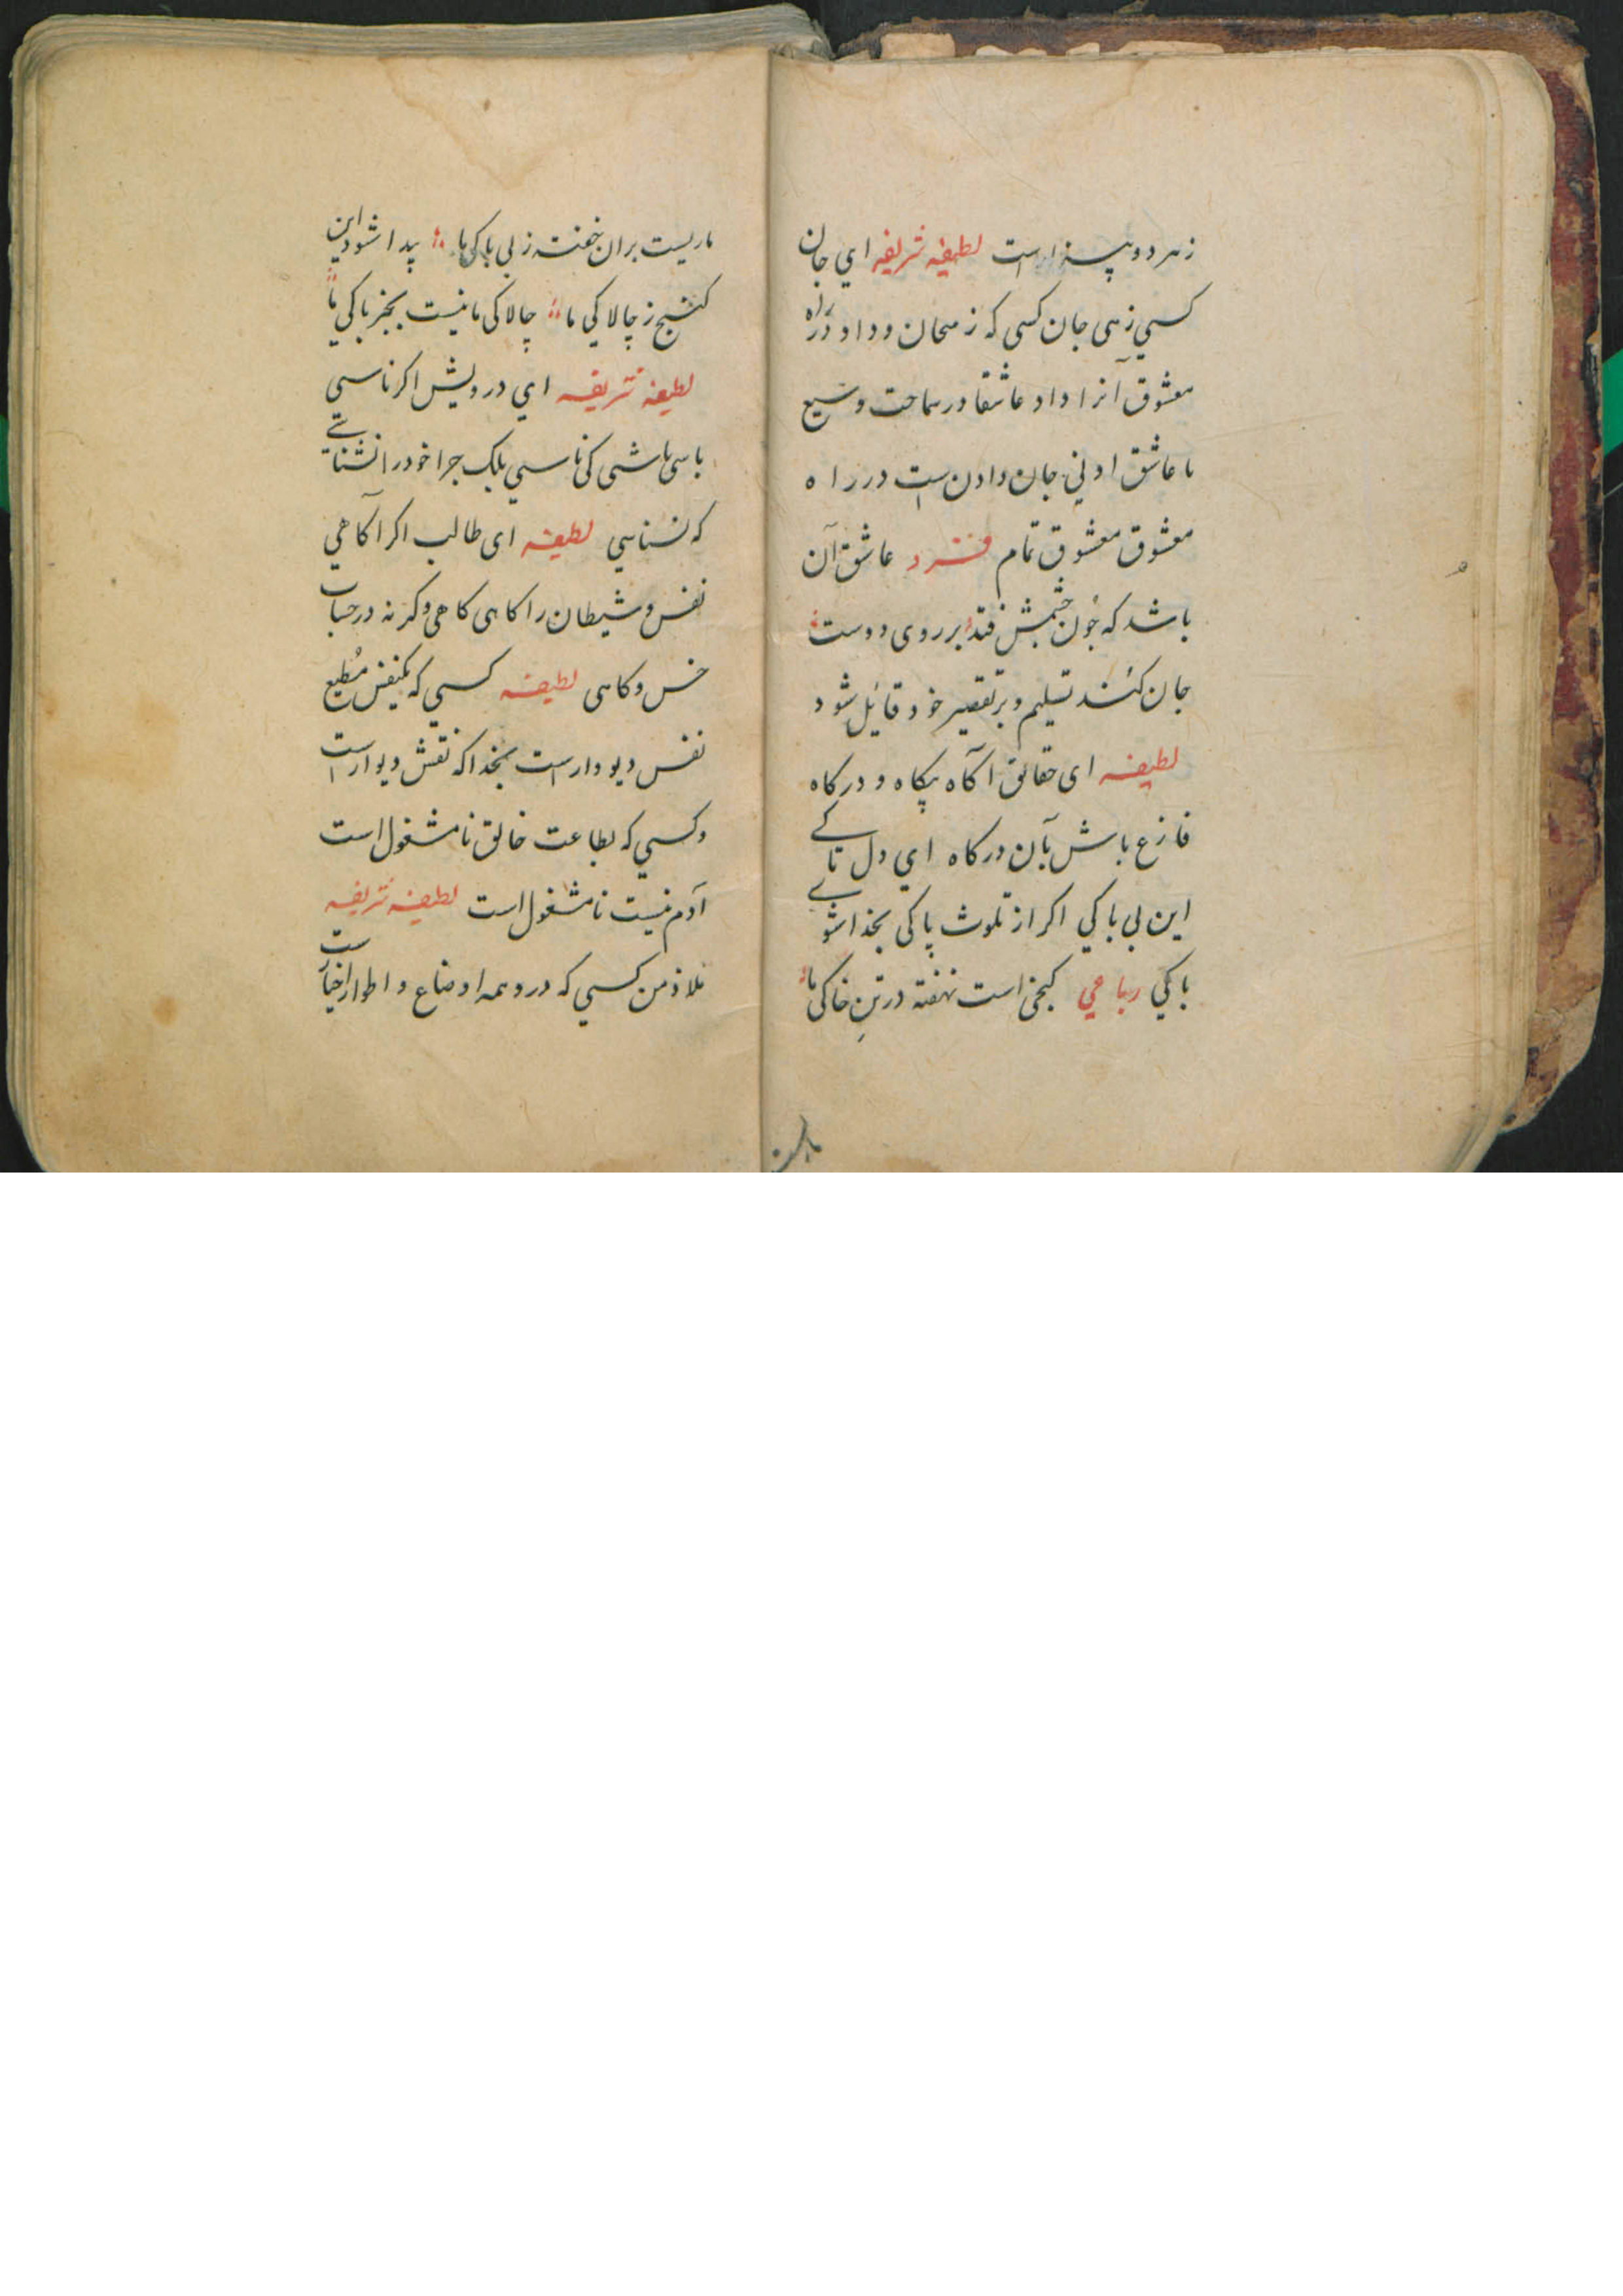 زهر دو بیزار است لطیفه شریفه ای جان
کسی زهی جان کسی که ز محان و داد در راه
معشوق آنرا داد عاشقا در سماحت وسیع
ما عاشق ادنی جان دادن است در راه
معشوق معشوق تمام فرد عاشق آن
باشد که چون چشمش فتد بر روی دوست
جان کند تسلیم و بر تقصیر خود قائل شود
لطیفه ای حقائق آگاه بیگاه و درگاه
فارغ باش بآن درگاه ای دل تا کے
این بی باکی اکر از تلوث پاکی بخدا شوے
باکی رباعی کنجی است نهفته در تن خاکی ما
ماریست بران خفته ز بی باکی ما پیدا شود این
گنج ز چالاکی ما چالاکی ما نیست بجز باکی ما
لطیفه شریفه ای درویش اکر ناسی
باسی باشی کی ناسی بلک چرا خود را نشناسے
که نسناسی لطیفه ای طالب اکر آکاهی
نفس و شیطان را کاهی کاهی وکرنه در حساب
خس و کاهی لطیفه کسی که یکنفس مُطیع
نفس دیو وار است بخدا که نقش دیوار است
وکسی که بطاعت خالق نامشغول است
آدم نیست نامشغول است لطیفه شریفه
ملاذ من کسی که در و همه اوضاع و اطوار اخیار ست